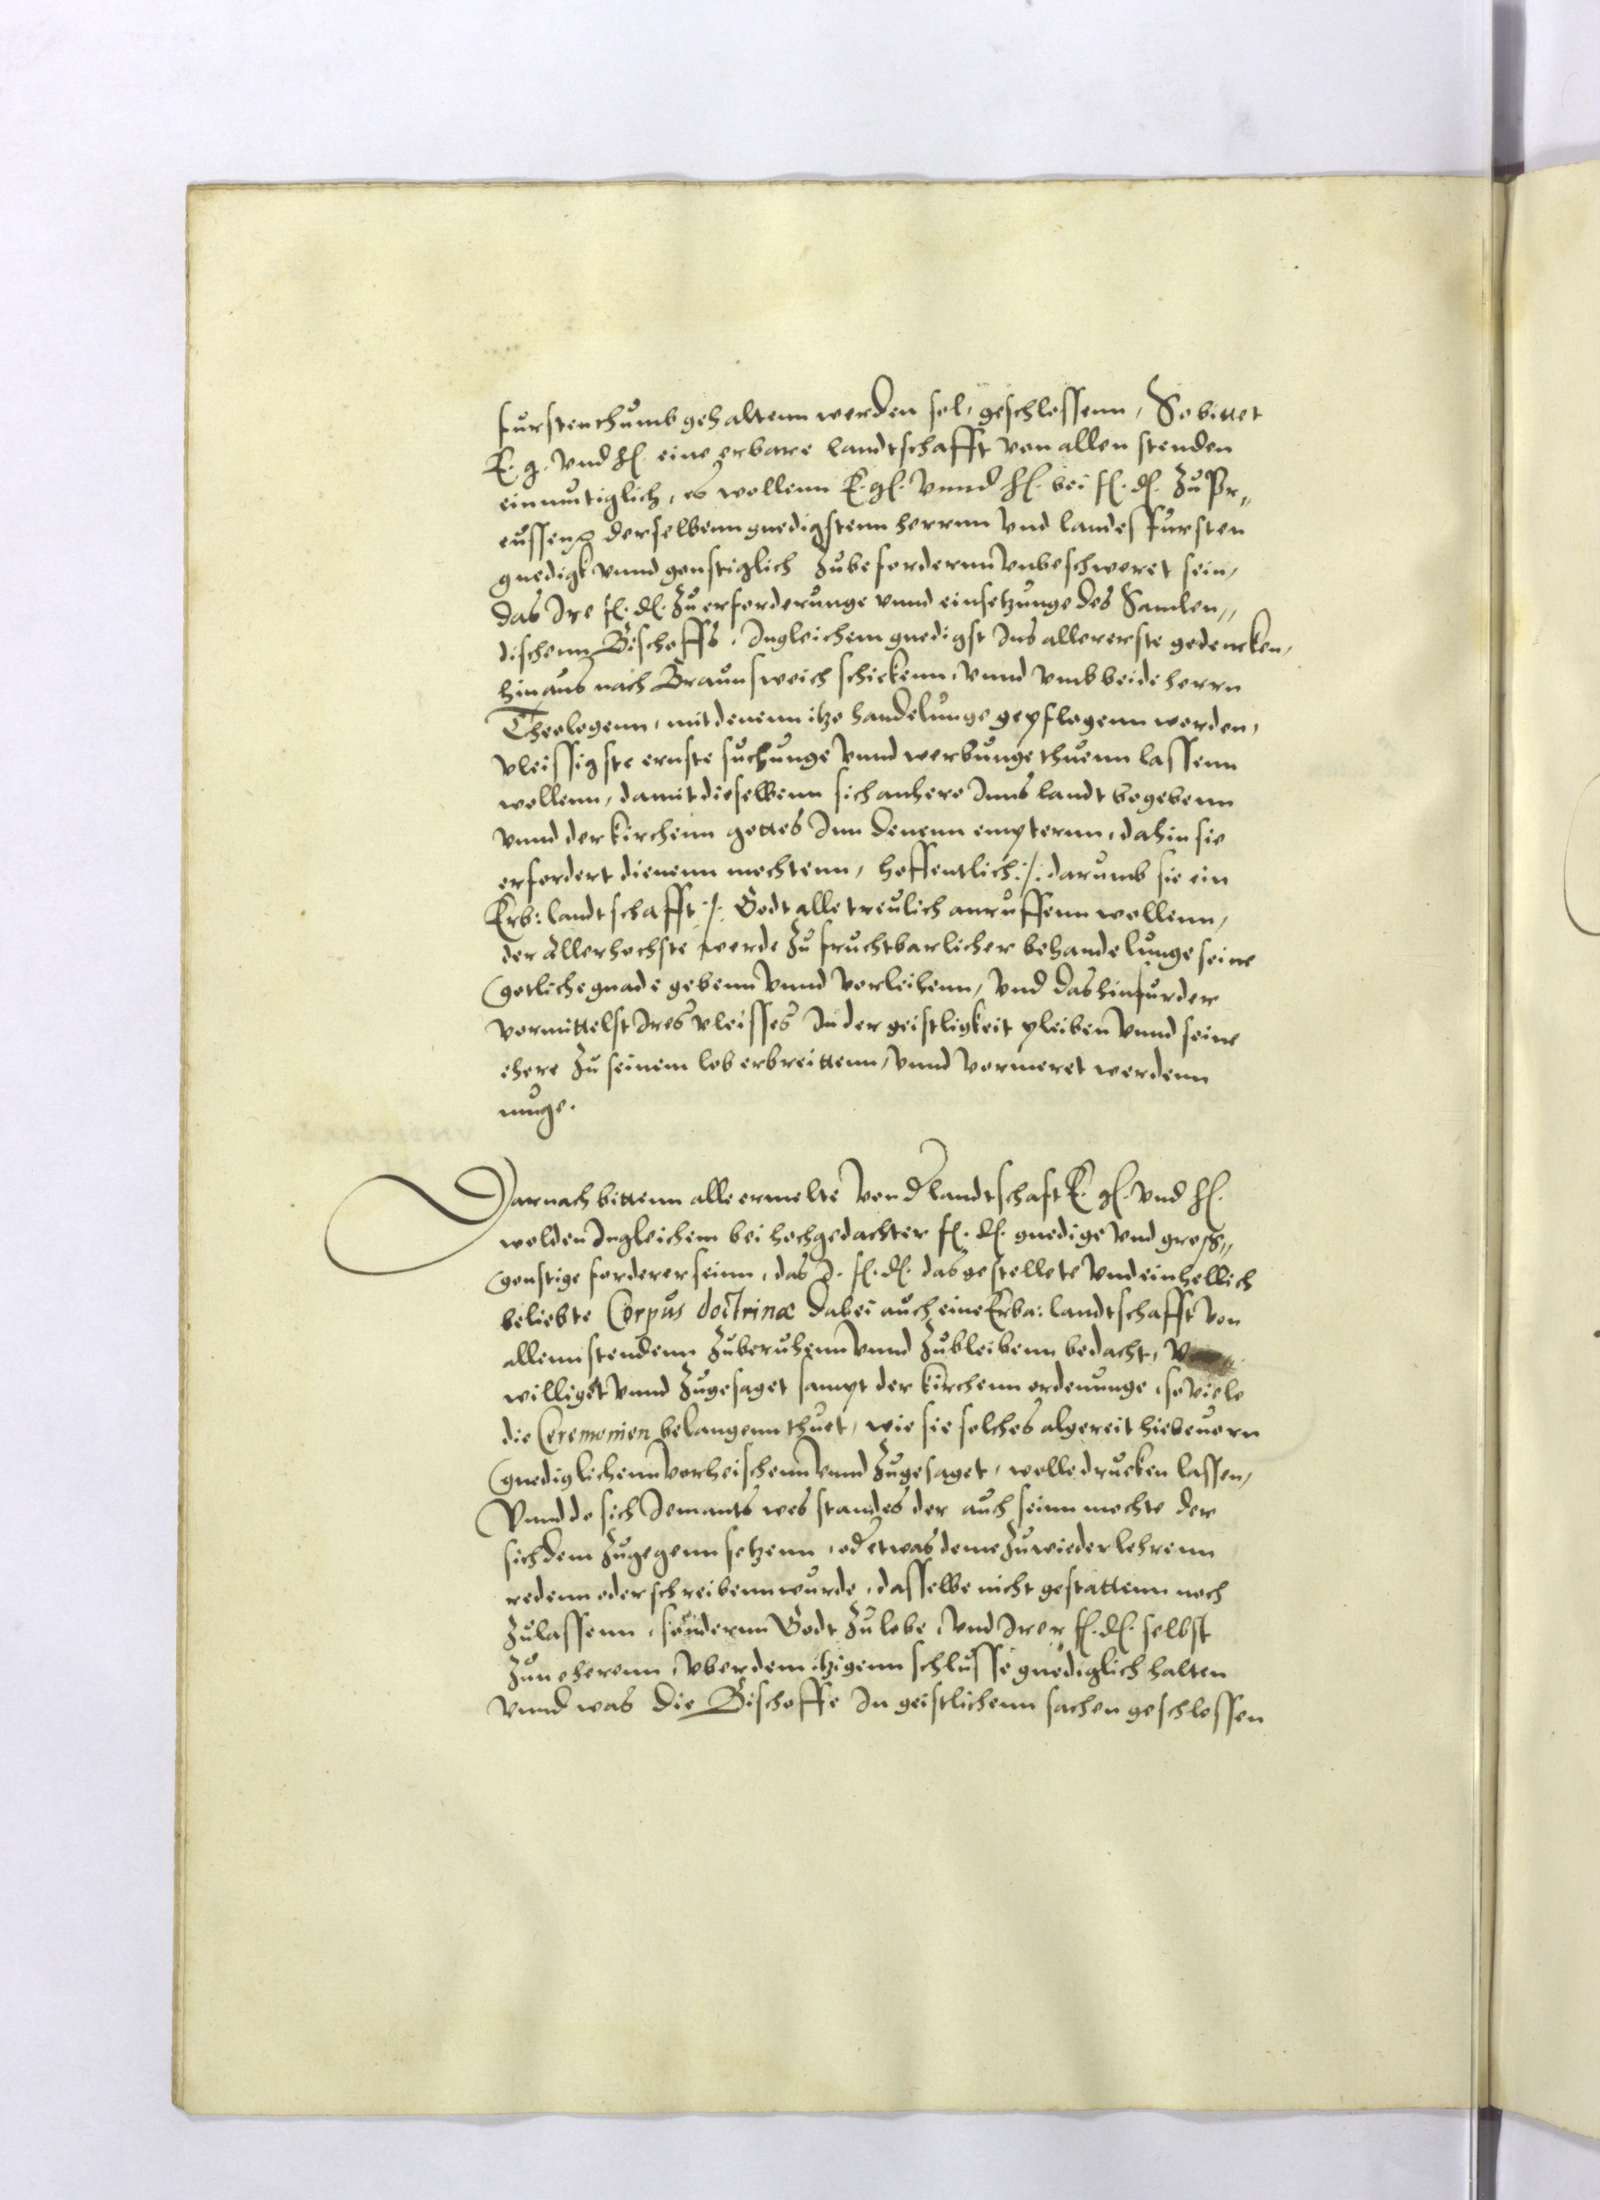 furstenthumb gehaltenn werden sol, geschlossenn, So bittet
E. g. vnd hſ. eine erbare landtschafft von allen stenden
einmutiglich, es wollenn E. gſ. vnnd hſ. bei fſ. dſ. Zu Pr„
eussenn derselbenn gnedigstenn herrnn vnd landesfursten
gnedigk vnnd gonstiglich zubefordernn vnbeschweret sein,
das Ire fſ. dſ. Zu erforderunge vnnd einsetzunge des Samlen„
dischenn Bischoffs, Ingleichem gnedigst Ins allererste gedencken,
hinaus nach Braunsweich schickenn, vnnd vmb beide herrn
Theologenn, mit denenn itzo handelunge gepflogenn worden,
vleissigste ernste suchunge vnnd werbunge thuenn lassenn
wollenn, damit dieselbenn sich anhero Inns landt begebenn
vnnd der kirchenn gottes Inn denenn empternn, dahin sie
erfordert dienenn mochtenn, hoffentlich :/: darumb sie ein
Erb: landtschafft :/: Godt alle treulich anruffenn wollenn,
der allerhochste werde zu fruchtbarlicher behandelunge seine
gotliche gnade gebenn vnnd vorleihenn, vnd das hinfurder
vormittelst Ires vleisses In der geistligkeit pleiben vnnd seine
ehere zu seinem lob erbreittenn, vnnd vormeret werdenn
muge.
Darnach bittenn alle ermelte von d landtschaft E. gſ. vnd hſ.
wolden Ingleichem bei hochgedachter fſ. dſ. gnedige vnd gross„
gonstige forderer seinn, das I. fſ. dſ. das gestellete vnd einhellich
beliebte Corpus doctrinæ dabei auch eine Erba: landtschafft von
allenn stendenn zuberuhenn vnnd zubleibenn bedacht,
williget vnnd zugesaget sampt der kirchenn ordenunge, so viele
die Ceremonien belangenn thuet, wie sie solches algereit hiebeuorn
gnediglichenn vorheischenn vnnd zugesaget, wolle drucken lassen,
Vnnd do sich Iemants wes standes der auch seinn mochte der
sich dem zugegenn setzenn, od etwas deme zuwieder lehrenn
redenn oder schreibenn wurde, dasselbe nicht gestattenn noch
zulassenn, sondernn Godt zu lobe, vnd Irer fſ. dſ. selbst
zun eherenn, vber dem itzigenn schlusse gnediglich halten
vnnd was die Bischoffe In geistlichenn sachen geschlossen